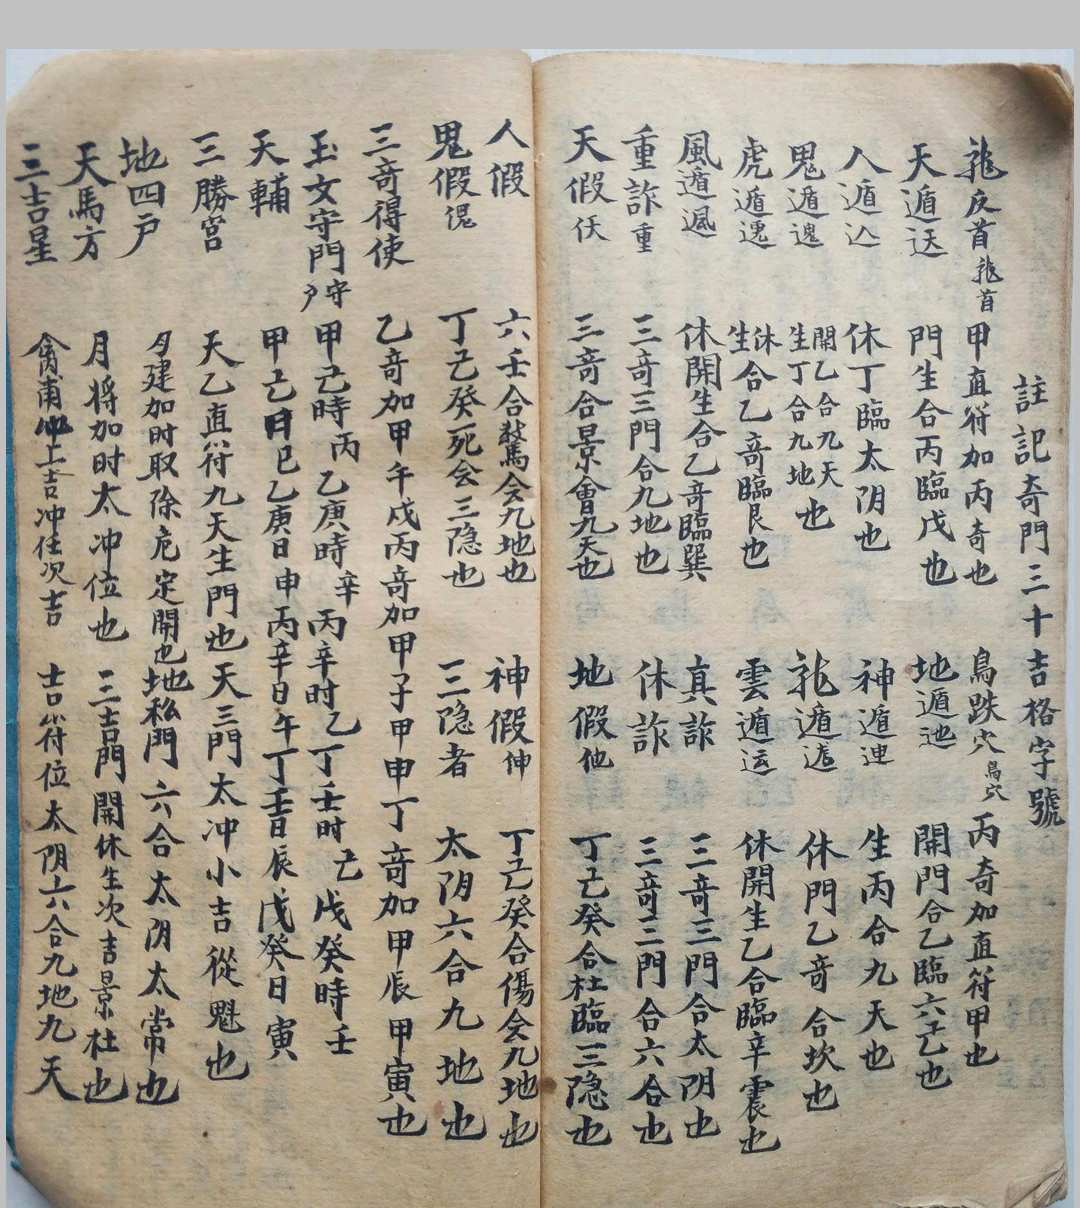 註記奇門三十吉格字號
龍反首 龍首 甲直符加丙奇也 鳥跌穴 鳥穴 丙奇加直符甲也
天遁 門生合丙臨戊也 地遁 開門合乙臨六己也
人遁 休丁臨太阴也 神遁 生丙合九天也
鬼遁 開乙合九天 生丁合九地也 龍遁 休門乙奇合坎也
虎遁 休生合乙奇臨艮也 雲遁 休開生乙合臨辛震也
風遁 休開生合乙奇臨巽 真詐 三奇三門合太阴也
重詐重 三奇三門合九地也 休詐 三奇三門合六合也
天假 三奇合景會九天也 地假 丁己癸合杜臨三隐也
人假 六壬合驚会九地也 神假 丁己癸合傷会九地也
鬼假 丁己癸死会三隐也 三隐者 太阴六合九地也
三奇得使 乙奇加甲午戊丙奇加甲子甲申丁奇加甲辰甲寅也
玉女守門 户守 甲己時丙 乙庚時辛 丙辛时乙 丁壬时己 戊癸時壬
天輔 甲己日巳乙庚日申丙辛日午丁壬日辰戊癸日寅
三勝宮 天乙直符九天生門也天三門太冲小吉從魁也
地四户 月建加时取除危定開也地私門六合太阴太常也
天馬方 月将加时太冲位也 三吉門開休生次吉景杜也
三吉星 禽甫心上吉冲任次吉 吉符位太阴六合九地九天